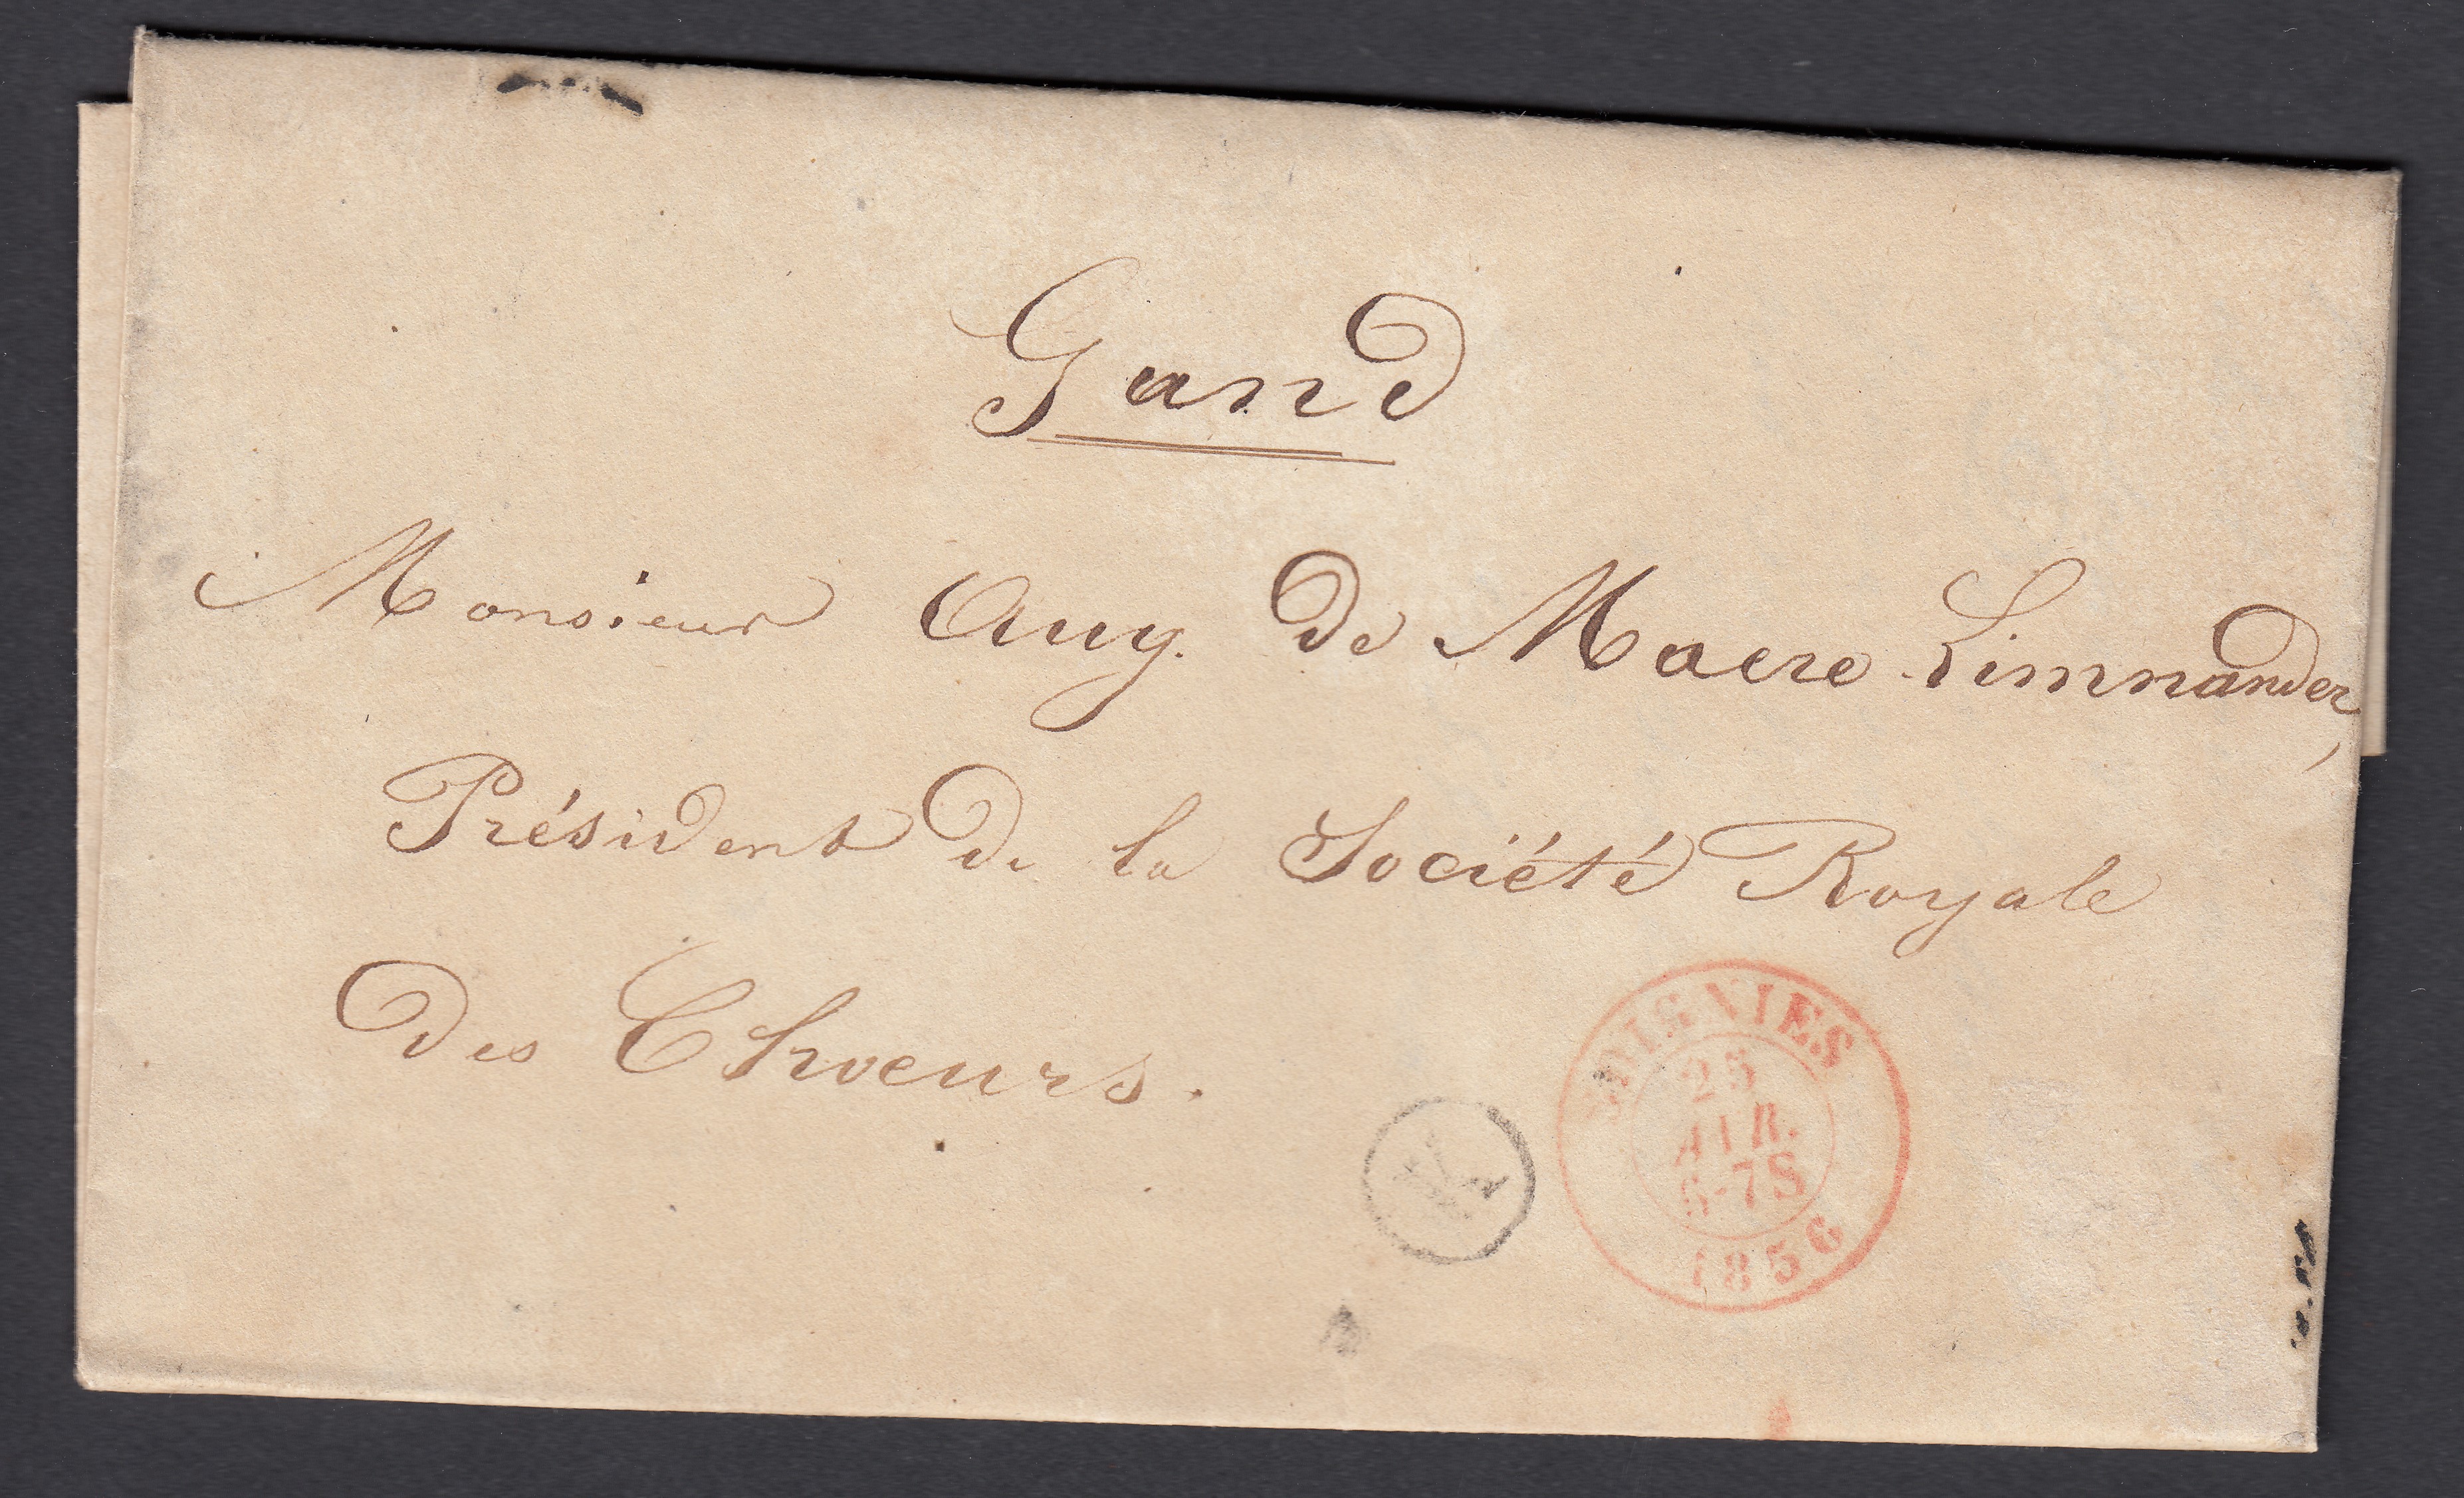 Gand
Monsieur Aug. de Maere Limnander,
Président de la Société Royale
des Choeurs.
SOIGNIES
25
AVR.
6-7S
1856